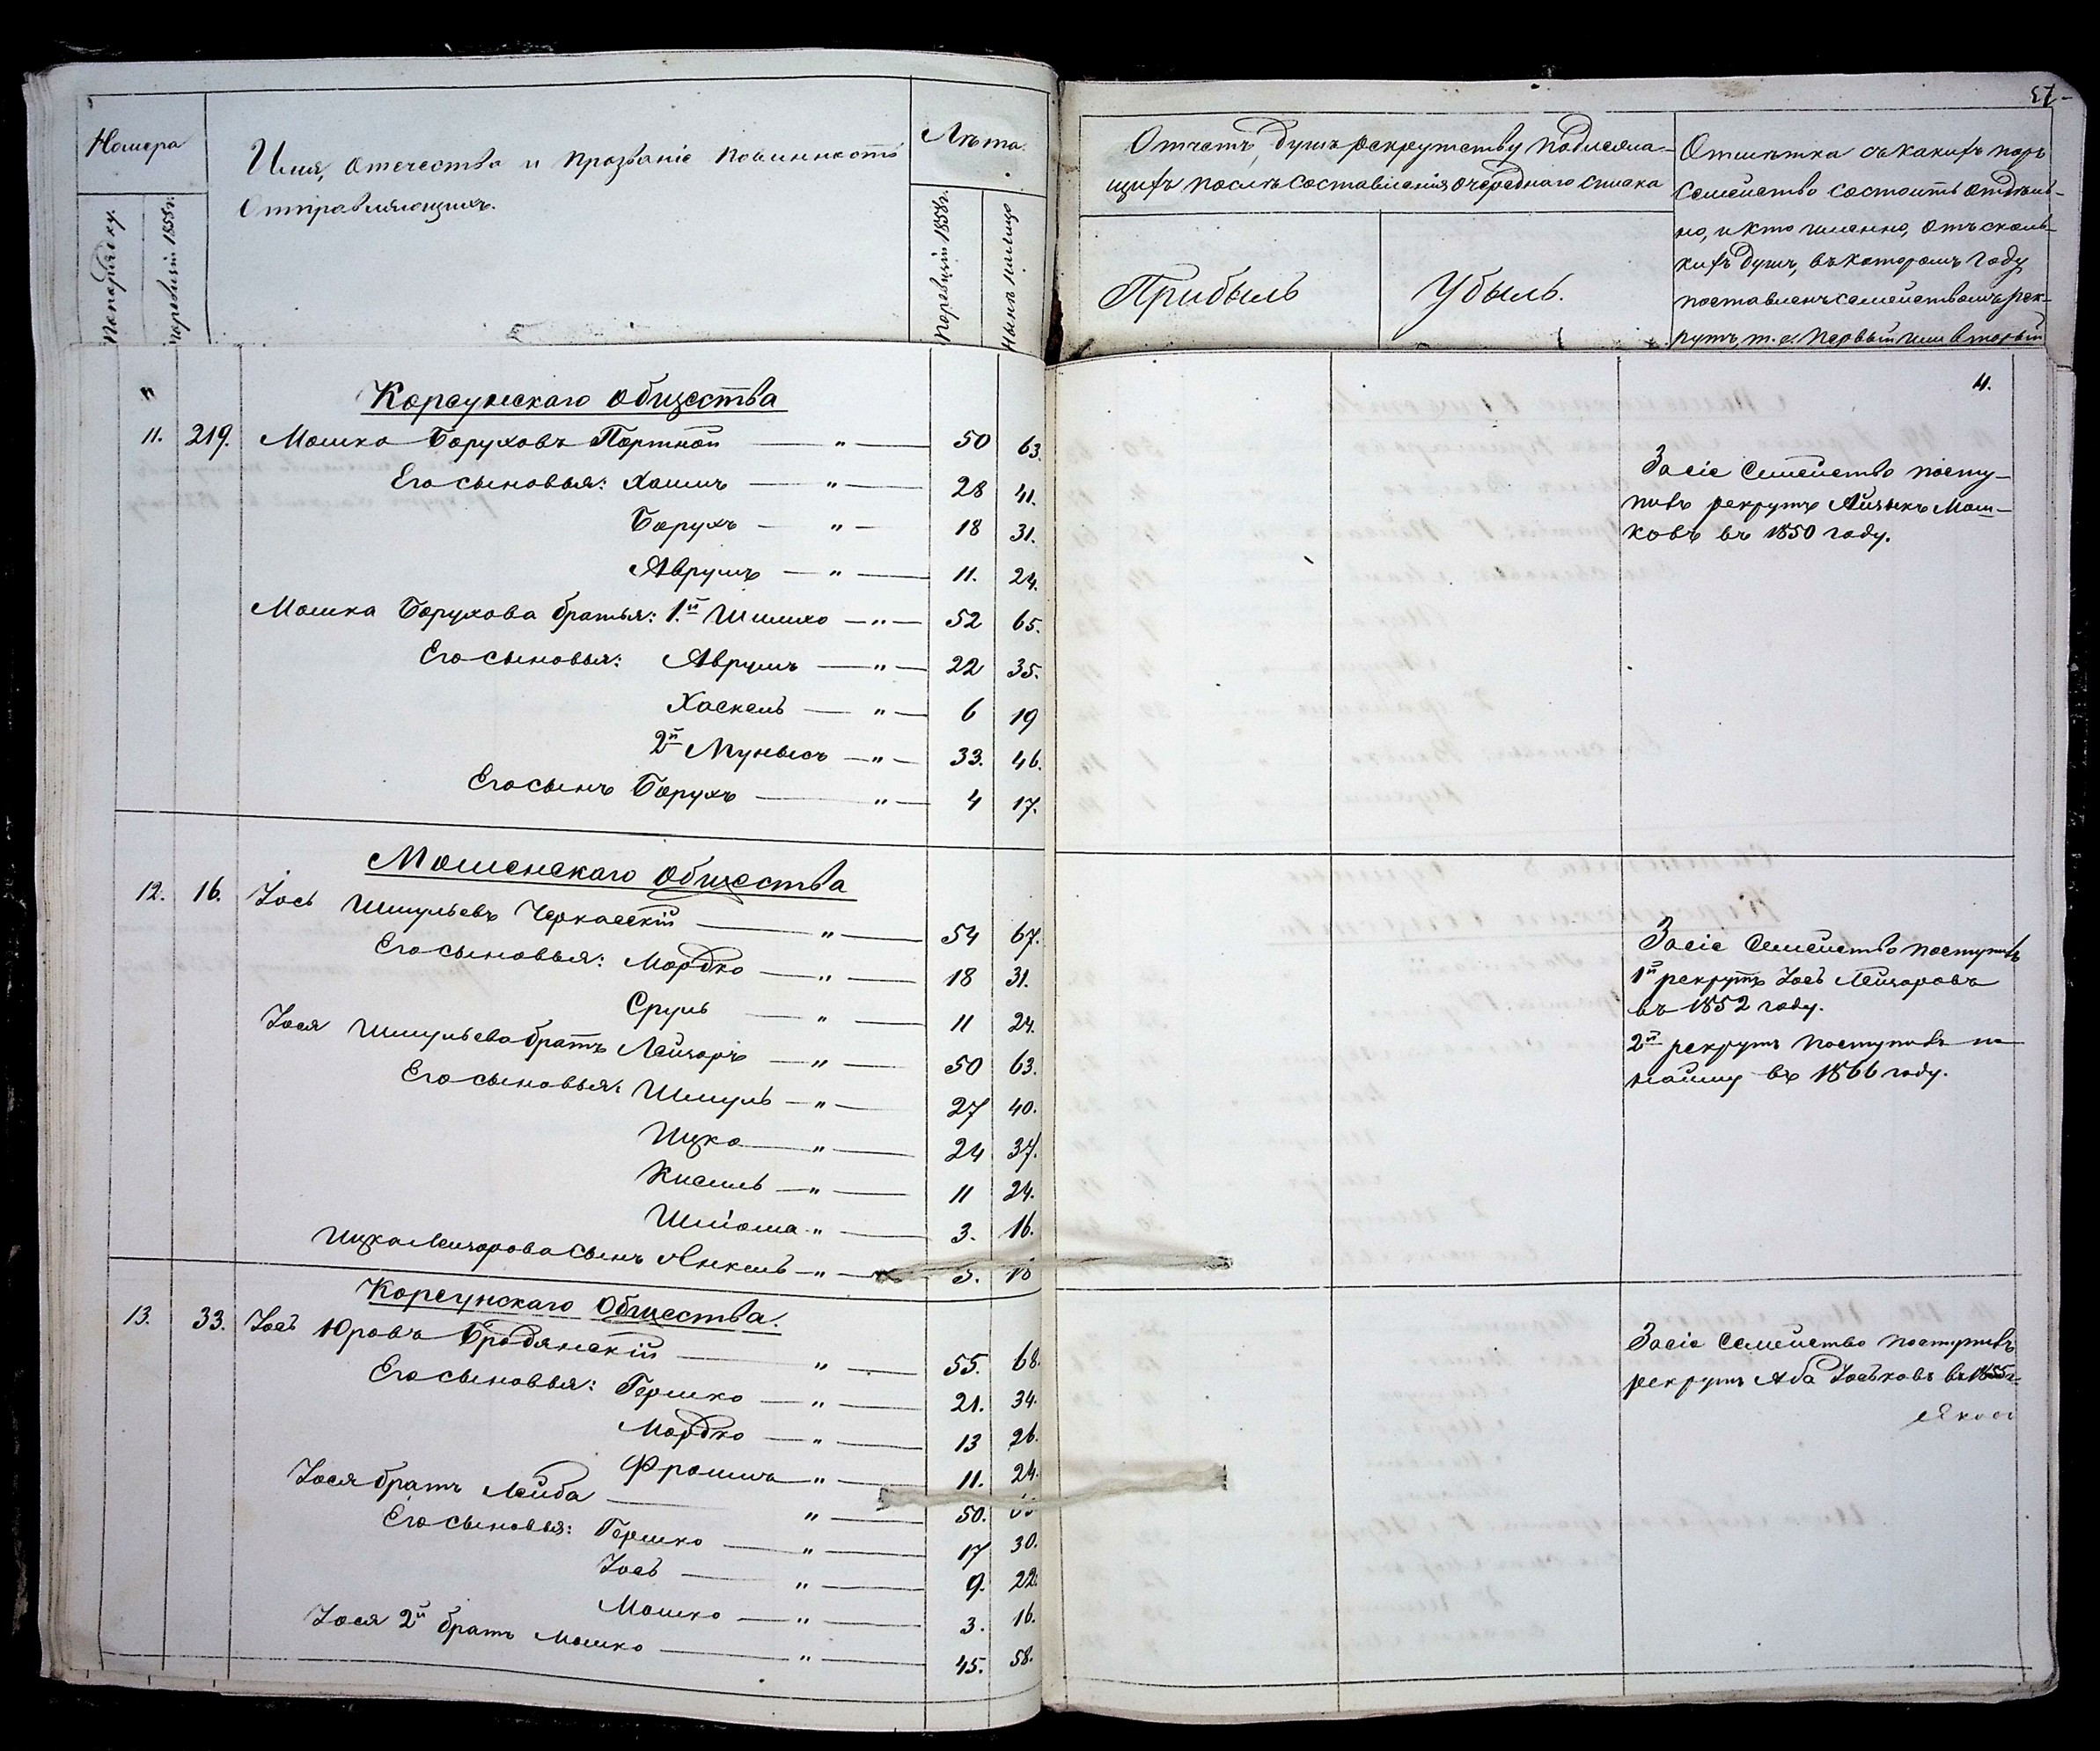 57
Номера
По порядку.
По ревизіи 1858 г.
Имя, отечество и прозваніе повинность
отправляющихъ.
Лѣта.
По ревизіи 1858 г.
Нынѣ
Отчетъ душъ рекрутству подлежа-
щихъ послѣ составленія очереднаго списка
Прибыль
Убыль.
Отмѣтка съ какихъ поръ
семейство состоитъ отдѣль-
но, и кто именно, отъ сколь-
кихъ душъ, въ которомъ году
поставленъ семействомъ рек-
рутъ, т. е. первый или вторый
Корсунскаго Общества
11. 219. Мошко Боруховъ Портной — " — 50 63.
Его сыновья: Хаимъ — " — 28 41.
Борухъ — " — 18 31.
Аврумъ — " — 11. 24.
Мошка Борухова братья: 1.й Шлиомо — " — 52 65.
Его сыновья: Аврумъ — " — 22 35.
Хаскель — " — 6 19
2й Мунысъ — " — 33. 46.
Его сынъ Борухъ — " — 4 17.
4.
За сіе семейство посту-
пивъ рекрутъ Айзыкъ Мош-
ковъ въ 1850 году.
Мошенскаго Общества
12. 16. Іось Шмульевъ Черкасскій — " — 54 67.
Его сыновья: Мордко — " — 18 31.
Сруль — " — 11 24.
Іося Шмульева братъ Лейзоръ — " — 50 63.
Его сыновья: Шмуль — " — 27 40.
Ицко — " — 24 37.
Кисиль — " — 11 24.
Шліома " — 3. 16.
Ицка Лейзорова сынъ Янкель — " — 5. 18
За сіе семейство поступивъ
1й рекрутъ Іось Лейзоровъ
въ 1852 году.
2й рекрутъ поступивъ по
найму въ 1866 году.
Корсунскаго Общества.
13. 33. Іось Юровъ Бродянскій — " — 55. 68.
Его сыновья: Гершко — " — 21. 34.
Мордко — " — 13 26.
Фроимъ " — 11. 24.
Іося братъ Лейба — " — 50.
Его сыновья: Гершко — " — 17 30.
Іось — " — 9. 22.
Мошко — " — 3. 16.
Іося 2й братъ Мошко — " — 45. 58.
За сіе семейство поступивъ
рекрутъ Аба Іоськовъ въ 1855 г.